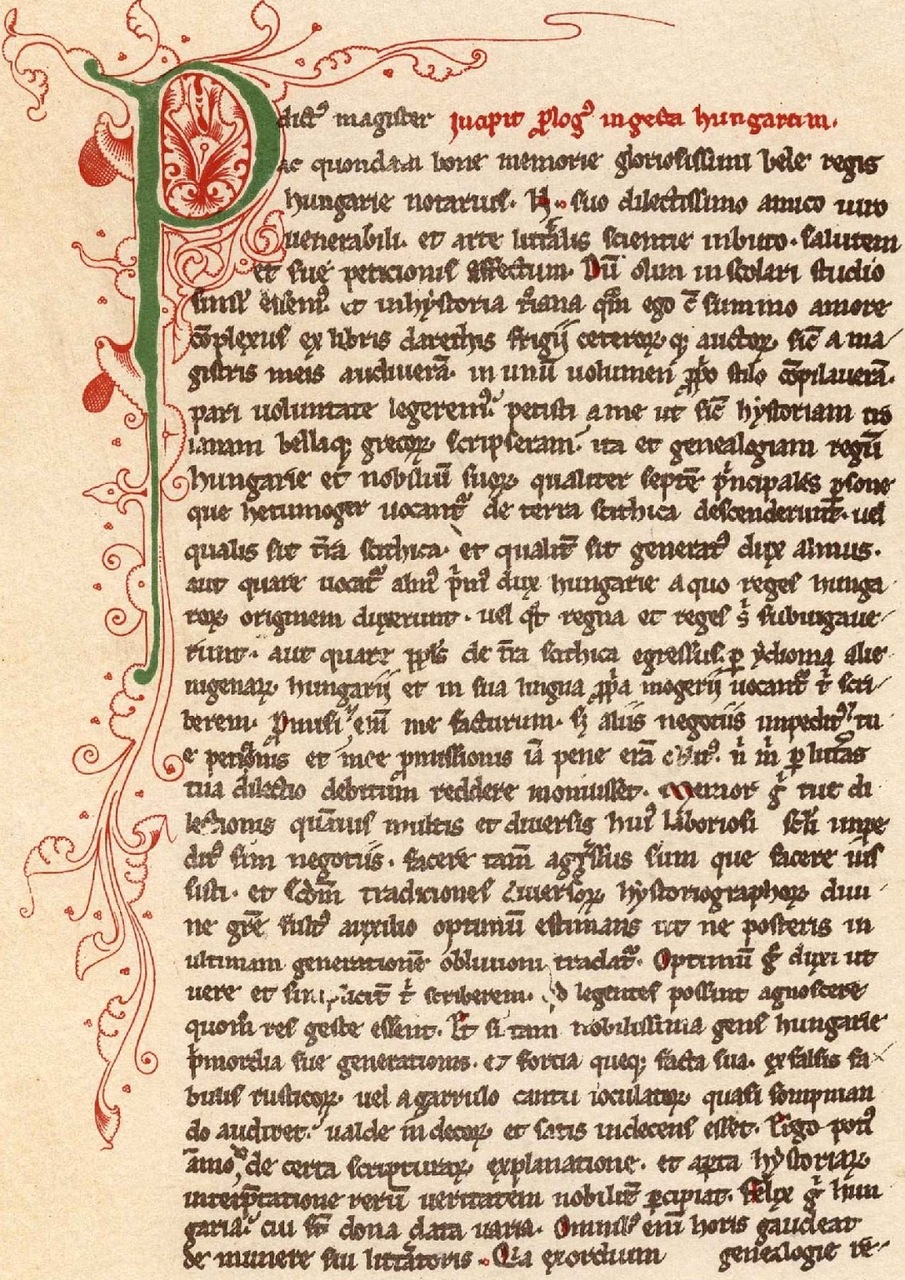 P dict᷒ magister Incipit ꝓlog᷒ in gesta hungarum.
ac quondam bone memorie gloriosissimi bele regis
hungarie notarius. N. suo dilectissimo amico uiro
uenerabili. et arte litͣlis scientie inbuto. salutem
et sue peticionis effectum. Dū olim in scolari studio
simĺ essem᷒. et in hystoria t͛iana qͣm ego cͫ summo amore
cōplexus ex libris darethis frigij ceteroꝝ qꝫ auctoꝝ. sic̄ a ma
gistris meis audiuerā. in unū uolumen ꝓpͥo stilo cōpilauerā.
pari uoluntate legerem᷒. petisti a me ut sic̄ hystoriam tro
ianam bellaqꝫ grecoꝝ scripseram. ita et genealogiam regū
hungarie et nobiliū suoꝝ. qualiter septē pͥncipales ꝑsone
que hetumoger uocantᷣ de terra scithica descenderunt. uel
qualis sit t͛ra scithica. et qualit̄ sit generat᷒ dux almus.
aut quare uocatᷣ alm᷒ pͥm᷒ dux hungarie a quo reges hunga
roꝝ originem duxerunt. uel qͦt regna et reges s͛ subiugaue
runt. aut quare ppl̄s de t͛ra scithica egressus. ꝑ ydioma alie
nigenaꝝ hungarij et in sua lingua ꝓpͥa mogerij uocantᷣ tͥ scri
berem. Promisi eni me facturum. sꝫ aliis negotiis impedit᷒. tu
e petic̄nis et mee ꝓmissionis iā pene erā oblit᷒. nͥ mͥ ꝑ litͣas
tua dilectio debitum reddere monuisset. Memor gͦ tue di
lectionis quāuis multis et diuersis hui᷒ laboriosi scl̄i inpe
dit᷒ sim negotiis. facere tam̄ aggͤssus sum que facere ius
sisti. et scd̄m tradiciones diuersoꝝ hystoriographoꝝ diui
ne grē fult᷒ auxilio optimū estimans ut ne posteris in
ultimam generationē obliuioni tradatᷣ. Optimū gͦ duxi ut
uere et simplicit̄ tͥ scriberem. qd̄ legentes possint agnoscere
quom̄ res geste essent. Et si tam nobilissima gens hungarie
pͥmordia sue generationis. et fortia queqꝫ facta sua. ex falsis fa
bulis rusticoꝝ. uel a garrulo cantu ioculatoꝝ quasi sompnian
do audiret. ualde indecoꝝ et satis indecens esset. Ergo poti᷒
āmodo de certa scripturaꝝ explanatione. et aꝑta hystoriaꝝ
interp̄tatione rerū ueritatem nobilit̄ ꝑcipiat. Felix gͦ hun
garia. cui sū̄t dona data uaria. Omnib᷒ eni horis gaudeat
de munere sui litͣatoris. Quia exordium genealogie re